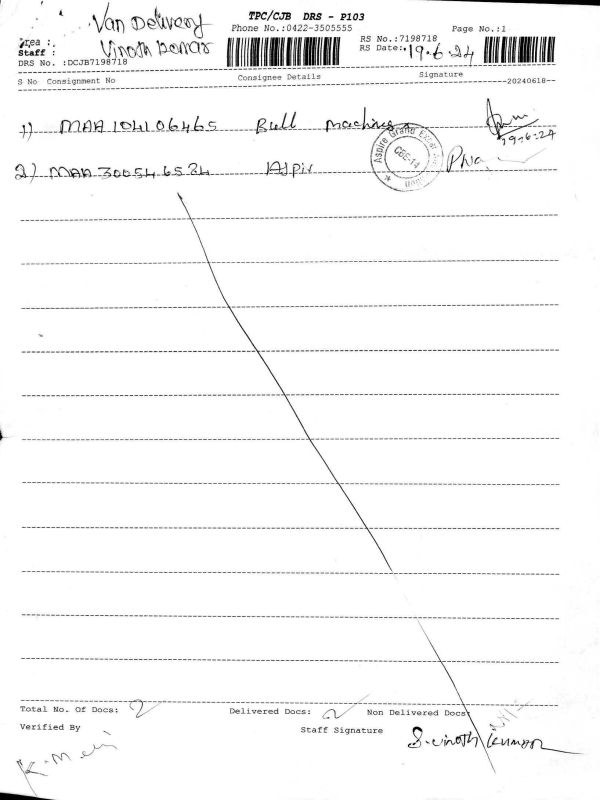 TPC/CJB DRS - P103
Van Delivery
Phone No.:0422-3505555 Page No.:1
Area :
Staff : Vinoth
RS No.:7198718
RS Date: 19.6.24
DRS No. :DCJB7198718
S No Consignment No Consignee Details Signature 20240618
1) MAA 104106465 Bull machines
19-6-24
2) MAA 300546524
Aspire Grand
CBE-14
Total No. Of Docs: 2 Delivered Docs: 2 Non Delivered Docs:
Verified By Staff Signature
S. vinoth kumar